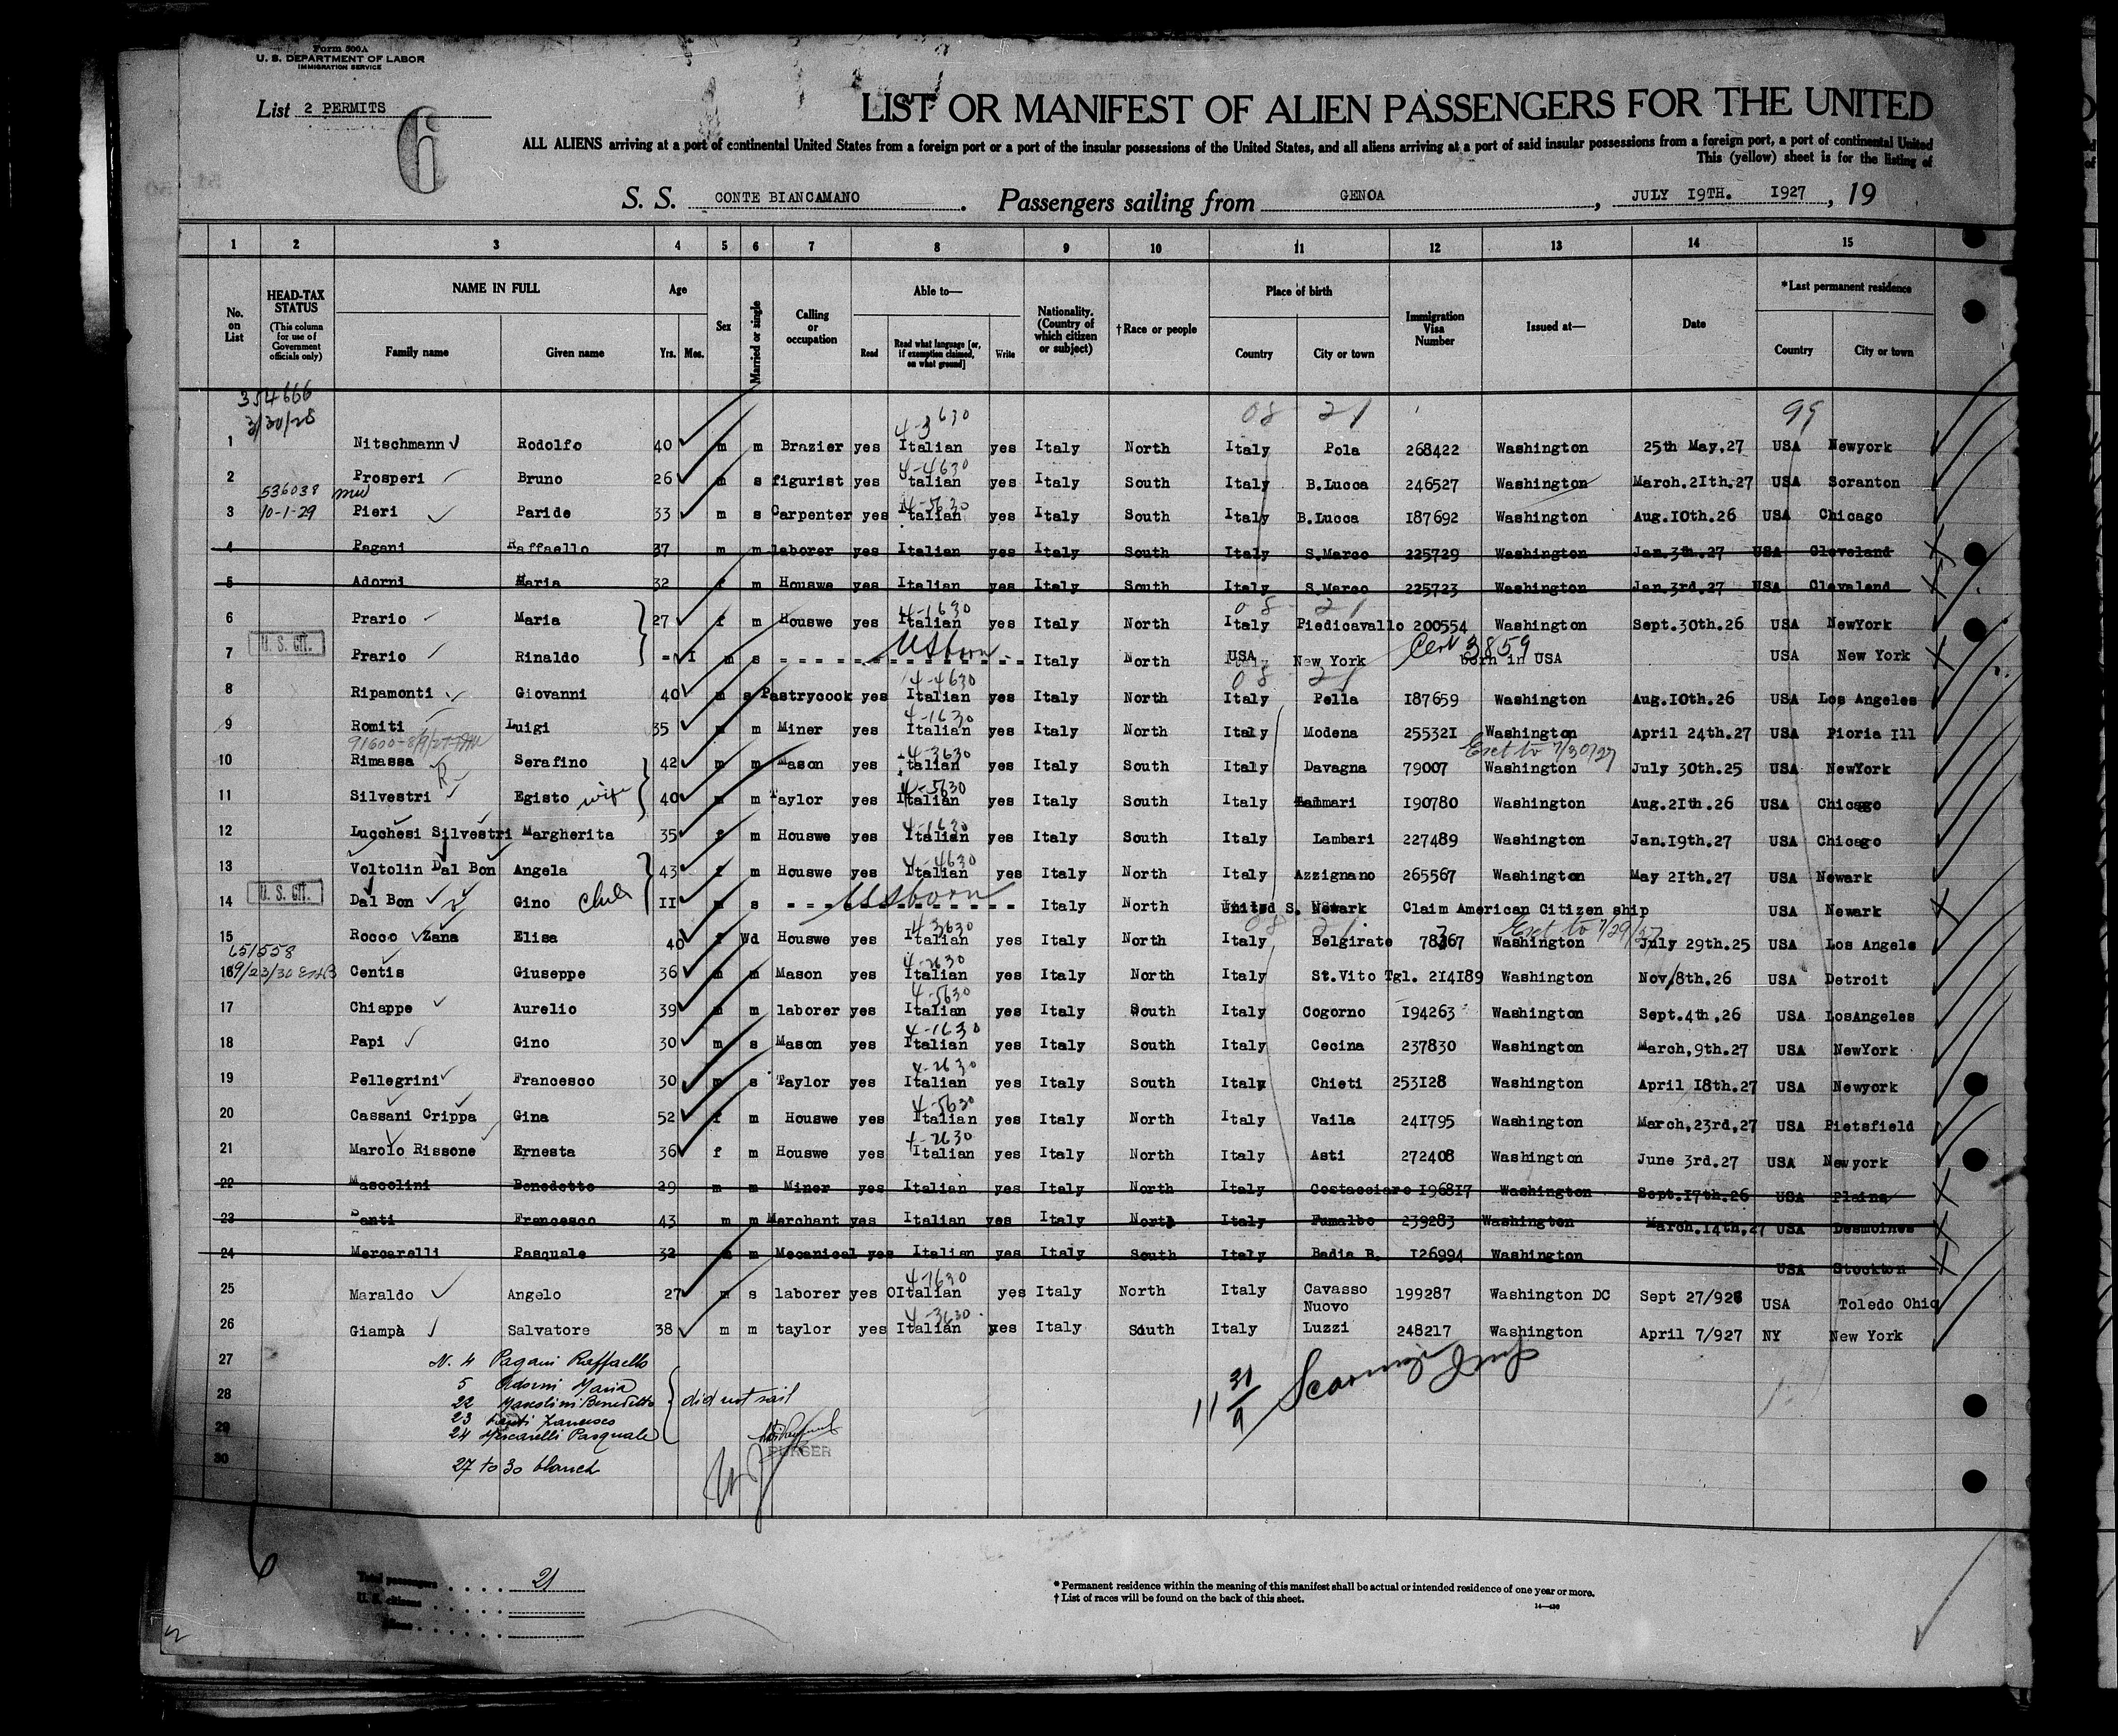 Form 500A
U. S. DEPARTMENT OF LABOR
IMMIGRATION SERVICE
List 2 PERMITS
6
LIST OR MANIFEST OF ALIEN PASSENGERS FOR THE UNITED
ALL ALIENS arriving at a port of continental United States from a foreign port or a port of the insular possessions of the United States, and all aliens arriving at a port of said insular possessions from a foreign port, a port of continental United
This (yellow) sheet is for the listing of
S. S. CONTE BIANCAMANO. Passengers sailing from GENOA, JULY 19TH. 1927, 19
1 2 3 4 5 6 7 8 9 10 11 12 13 14 15
No. on List
HEAD-TAX STATUS (This column for use of Government officials only)
NAME IN FULL
Family name Given name
Age
Yrs. Mos.
Sex
Married or single
Calling or occupation
Able to—
Read Read what language [or, if exemption claimed, on what ground] Write
Nationality. (Country of which citizen or subject)
†Race or people
Place of birth
Country City or town
Immigration Visa Number
Issued at—
Date
*Last permanent residence
Country City or town
354666
3/30/28
08 21 99
4-3 630
1 Nitschmann Rodolfo 40 m m Brazier yes Italian yes Italy North Italy Pola 268422 Washington 25th May.27 USA Newyork
4-4630
2 Prosperi Bruno 26 m s figurist yes talian yes Italy South Italy B.Lucca 246527 Washington March.21th.27 USA Scranton
536038
10-1-29
4-5630
3 Pieri Paride 33 m s Carpenter yes Italian yes Italy South Italy B.Lucca 187692 Washington Aug.10th.26 USA Chicago
4 Pagani Raffaello 37 m m laborer yes Italian yes Italy South Italy S.Marco 225729 Washington Jan.3th.27 USA Cleveland
5 Adorni Maria 32 f m Houswe yes Italian yes Italy South Italy S.Marco 225723 Washington Jan.3rd.27 USA Clevaland
4-1630 08 21
6 Prario Maria 27 f m Houswe yes Italian yes Italy North Italy Piedicavallo 200554 Washington Sept.30th.26 USA NewYork
U. S. CIT.
US born Cert 3859
7 Prario Rinaldo - I m s Italy North USA New York born in USA USA New York
4-4630 08 21
8 Ripamonti Giovanni 40 m s Pastrycook yes Italian yes Italy North Italy Pella 187659 Washington Aug.10th.26 USA Los Angeles
4-1630
9 Romiti Luigi 35 m m Miner yes Italian yes Italy North Italy Modena 255321 Washington April 24th.27 USA Pioria Ill
4-3630 Ext to 7/30/27
10 Rimassa Serafino 42 m m Mason yes talian yes Italy South Italy Davagna 79007 Washington July 30th.25 USA NewYork
4-5630
11 Silvestri Egisto wife 40 m m Taylor yes Italian yes Italy South Italy 190780 Washington Aug.21th.26 USA Chicago
4-1630
12 Lucchesi Silvestri Margherita 35 f m Houswe yes Italian yes Italy South Italy Lambari 227489 Washington Jan.19th.27 USA Chicago
4-4630
13 Voltolin Dal Bon Angela 43 f m Houswe yes Italian yes Italy North Italy Azzignano 265567 Washington May 21th.27 USA Newark
U. S. CIT.
US born
14 Dal Bon Gino child II m s Italy North United S. Newark Claim American Citizen ship USA Newark
4-3630 Ext to 7/29/27
15 Rocco Zana Elisa 40 f Wd Houswe yes Italian yes Italy North Italy Belgirate 78367 Washington July 29th.25 USA Los Angele
651558
9/23/30
4-2630
16 Centis Giuseppe 36 m m Mason yes Italian yes Italy North Italy St.Vito Tgl. 214189 Washington Nov/8th.26 USA Detroit
4-5630
17 Chiappe Aurelio 39 m m laborer yes Italian yes Italy South Italy Cogorno 194263 Washington Sept.4th.26 USA LosAngeles
4-1630
18 Papi Gino 30 m s Mason yes Italian yes Italy South Italy Cecina 237830 Washington March,9th.27 USA NewYork
4-2630
19 Pellegrini Francesco 30 m s Taylor yes Italian yes Italy South Italy Chieti 253128 Washington April 18th.27 USA Newyork
4-5630
20 Cassani Crippa Gina 52 f m Houswe yes Italian yes Italy North Italy Vaila 241795 Washington March,23rd,27 USA Pietsfield
4-2630
21 Marolo Rissone Ernesta 36 f m Houswe yes Italian yes Italy North Italy Asti 272408 Washington June 3rd.27 USA Newyork
22 Mascolini Benedetto 29 m m Miner yes Italian yes Italy North Italy Costacciaro 196817 Washington Sept.17th.26 USA Plains
23 Panti Francesco 43 m m Merchant yes Italian yes Italy North Italy Fumalbo 239283 Washington March.14th.27 USA Desmoines
24 Mercarelli Pasquale 32 m m Mecanical yes Italian yes Italy South Italy Badia B. 126994 Washington USA Stockton
4-1630
25 Maraldo Angelo 27 m s laborer yes OItalian yes Italy North Italy Cavasso Nuovo 199287 Washington DC Sept 27/926 USA Toledo Ohio
4-3630
26 Giampà Salvatore 38 m m taylor yes Italian yes Italy South Italy Luzzi 248217 Washington April 7/927 NY New York
27 N. 4 Pagani Raffaello
28 5 Adorni Maria
22 Mascolini Benedetto did not sail
29 23 Panti Francesco
24 Mercarelli Pasquale
PURSER
30 27 to 30 blanch
11 31/9
6
Total passengers 21
U. S. citizens
Aliens
* Permanent residence within the meaning of this manifest shall be actual or intended residence of one year or more.
† List of races will be found on the back of this sheet.